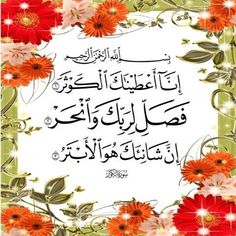 بِسْمِ اللَّهِ الرَّحْمَٰنِ الرَّحِيمِ
إِنَّا أَعْطَيْنَٰكَ ٱلْكَوْثَرَ ١
فَصَلِّ لِرَبِّكَ وَٱنْحَرْ ٢
إِنَّ شَانِئَكَ هُوَ ٱلْأَبْتَرُ ٣
سورة الكوثر